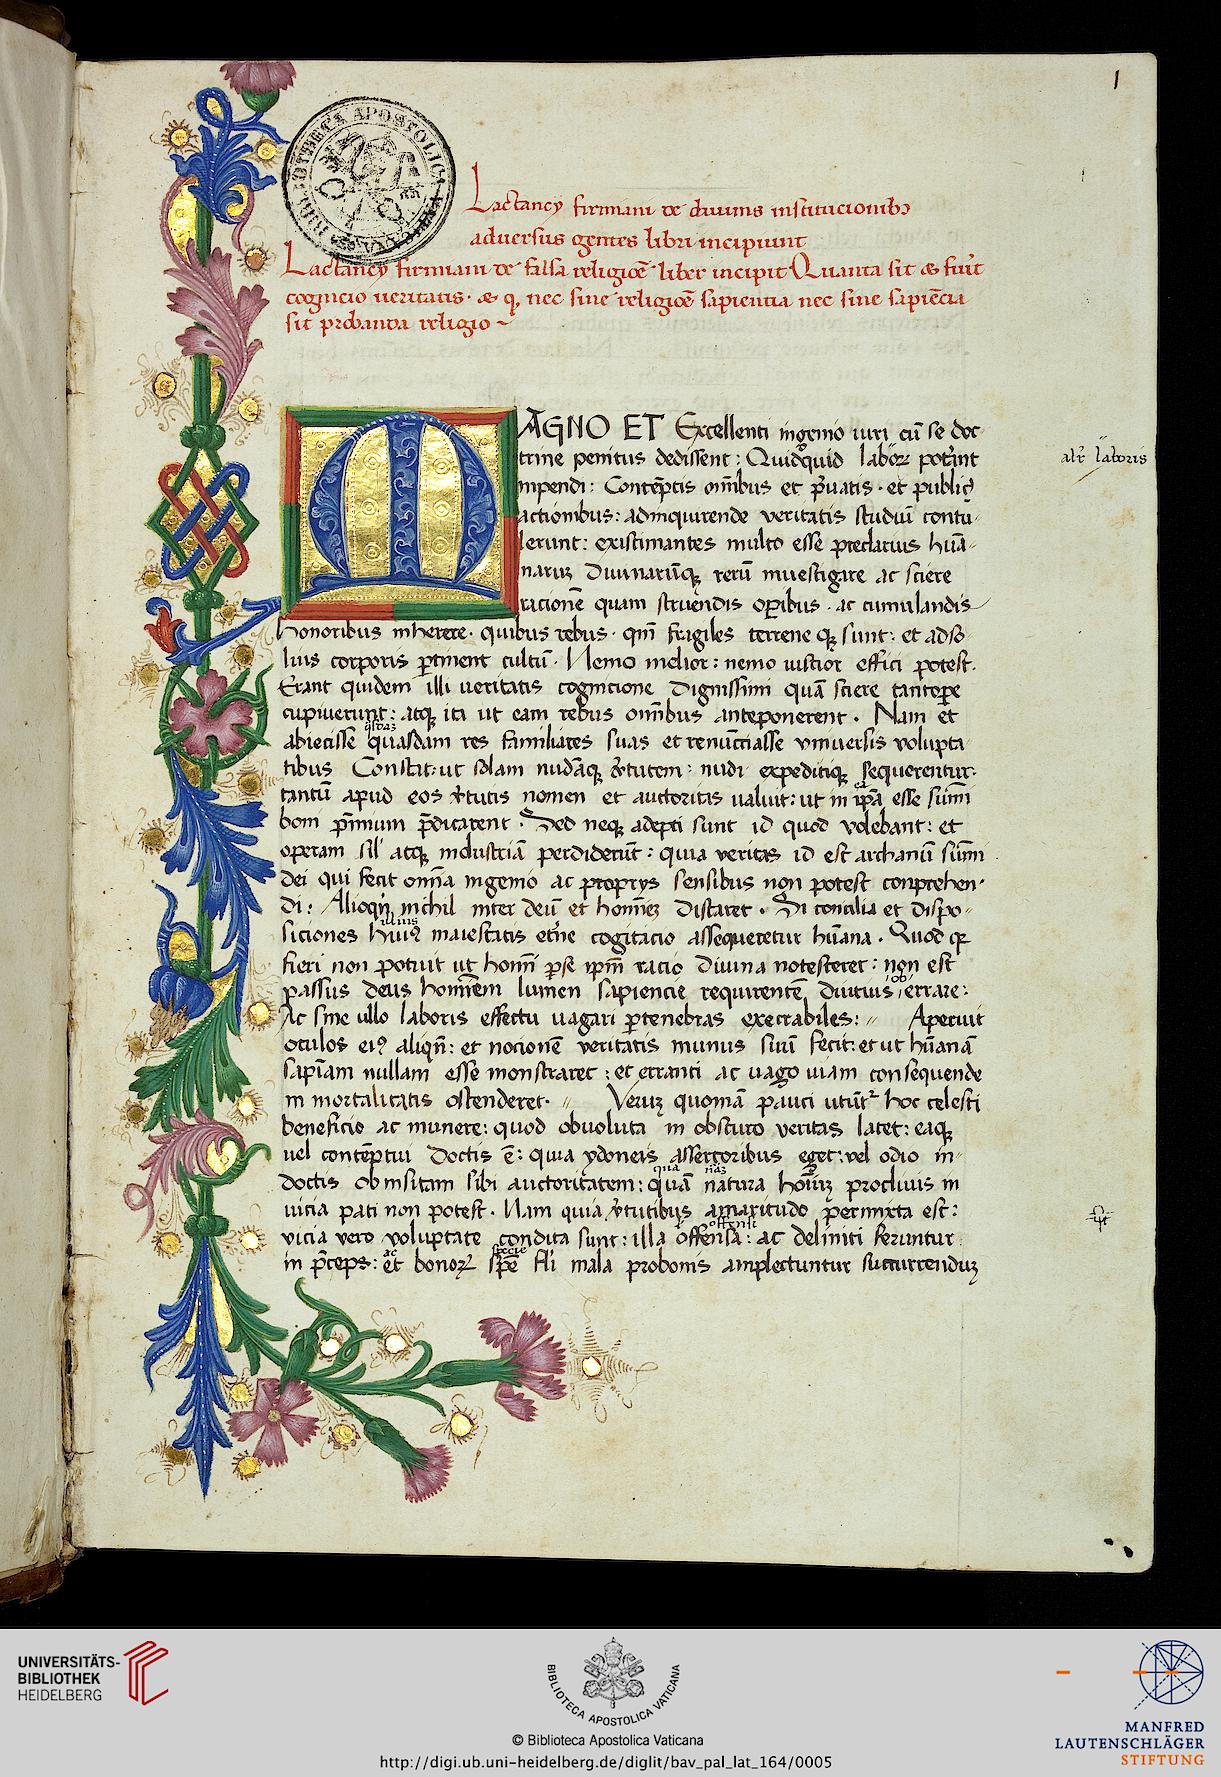 1
BIBLIOTHECA APOSTOLICA VATICANA
Lactancy firmiani de diuinis institucionibꝰ
aduersus gentes libri incipiunt
Lactancy firmiani de falsa religiōe liber incipit Quanta sit & fuit̄
cognicio ueritatis · & qꝫ nec sine religiōe sapientia nec sine sapiēcia
sit probanda religio ~
MAGNO ET Excellenti ingenio uiri cū se doc
trine penitus dedissent : Quidquid laboꝝ potint
inpendi : Contēptis om̄ibus et p̄uatis · et publicꝭ
actionibus : ad inquirende veritatis studiū contu-
lerunt : existimantes multo esse preclarius hūa-
naruꝫ diuinarūqꝫ rerū inuestigare ac sciere
racionē quam struendis oꝑibus · ac cumulandis
alr̄ laboris
honoribus inherere · quibus rebus · qm̄ fragiles terrene qꝫ sunt : et ad so-
lius corporis ꝑtinent cultū · Nemo melior : nemo iustior effici potest ·
Erant quidem illi ueritatis cognicione dignissimi quā sciere tantoꝑe
cupiuerunt : atqꝫ ita ut eam rebus om̄ibus anteponerent · Nam et
abiecisse quasdam res familiares suas et renūcciasse vniuersis volupta
tibus Constat : ut solam nudāqꝫ v̄tutem : nudi expeditiqꝫ sequerentur :
tantū apud eos v̄tutis nomen et auctoritas ualuit : ut in ip̄a esse sūmi
boni p̄mium p̄dicarent · Sed neqꝫ adepti sunt id quod volebant : et
operam sil̄ atqꝫ industriā perdiderūt : quia veritas id est archanū sūmi
dei qui fecit om̄ia ingenio ac proprys sensibus non potest conprehen-
di : Alioqn̄ nichil inter deū et homīeꝫ distaret · Si concilia et dispo-
illius
siciones huiꝰ maiestatis et̄ne cogitacio assequeretur hūana · Quod qꝫ
fieri non potuit ut homī ꝑ se ip̄m racio diuina notesceret : non est
passus deus homīem lumen sapiencie requirentē diucius errare :
Ac sine ullo laboris effectu uagari ꝑ tenebras execrabiles : Aperuit
oculos eiꝰ aliqn̄ : et nocionē veritatis munus suū fecit : et ut hūanā
sapīam nullam esse monstraret : et erranti ac uago uiam consequende
inmortalitatis ostenderet · Veruꝫ quoniā pauci utūtᷣ hoc celesti
beneficio ac munere : quod obuoluta in obscuro veritas latet : eaqꝫ
uel contēptui doctis ē : quia ydoneis assertoribus eget : vel odio in-
doctis ob insitam sibi auctoritatem : quā natura hoīuꝫ procliuis in
uicia pati non potest · Nam quia v̄tutibus amaritudo permixta est :
vicia vero voluptate condita sunt : illa offensa : ac deliniti feruntur
offensi
in p̄ceps : et bonoꝝ spē
ac
specie
fl̄i mala pro bonis amplectuntur succurrenduꝫ
UNIVERSITÄTS-
BIBLIOTHEK
HEIDELBERG
BIBLIOTECA APOSTOLICA VATICANA
© Biblioteca Apostolica Vaticana
http://digi.ub.uni-heidelberg.de/diglit/bav_pal_lat_164/0005
MANFRED
LAUTENSCHLÄGER
STIFTUNG